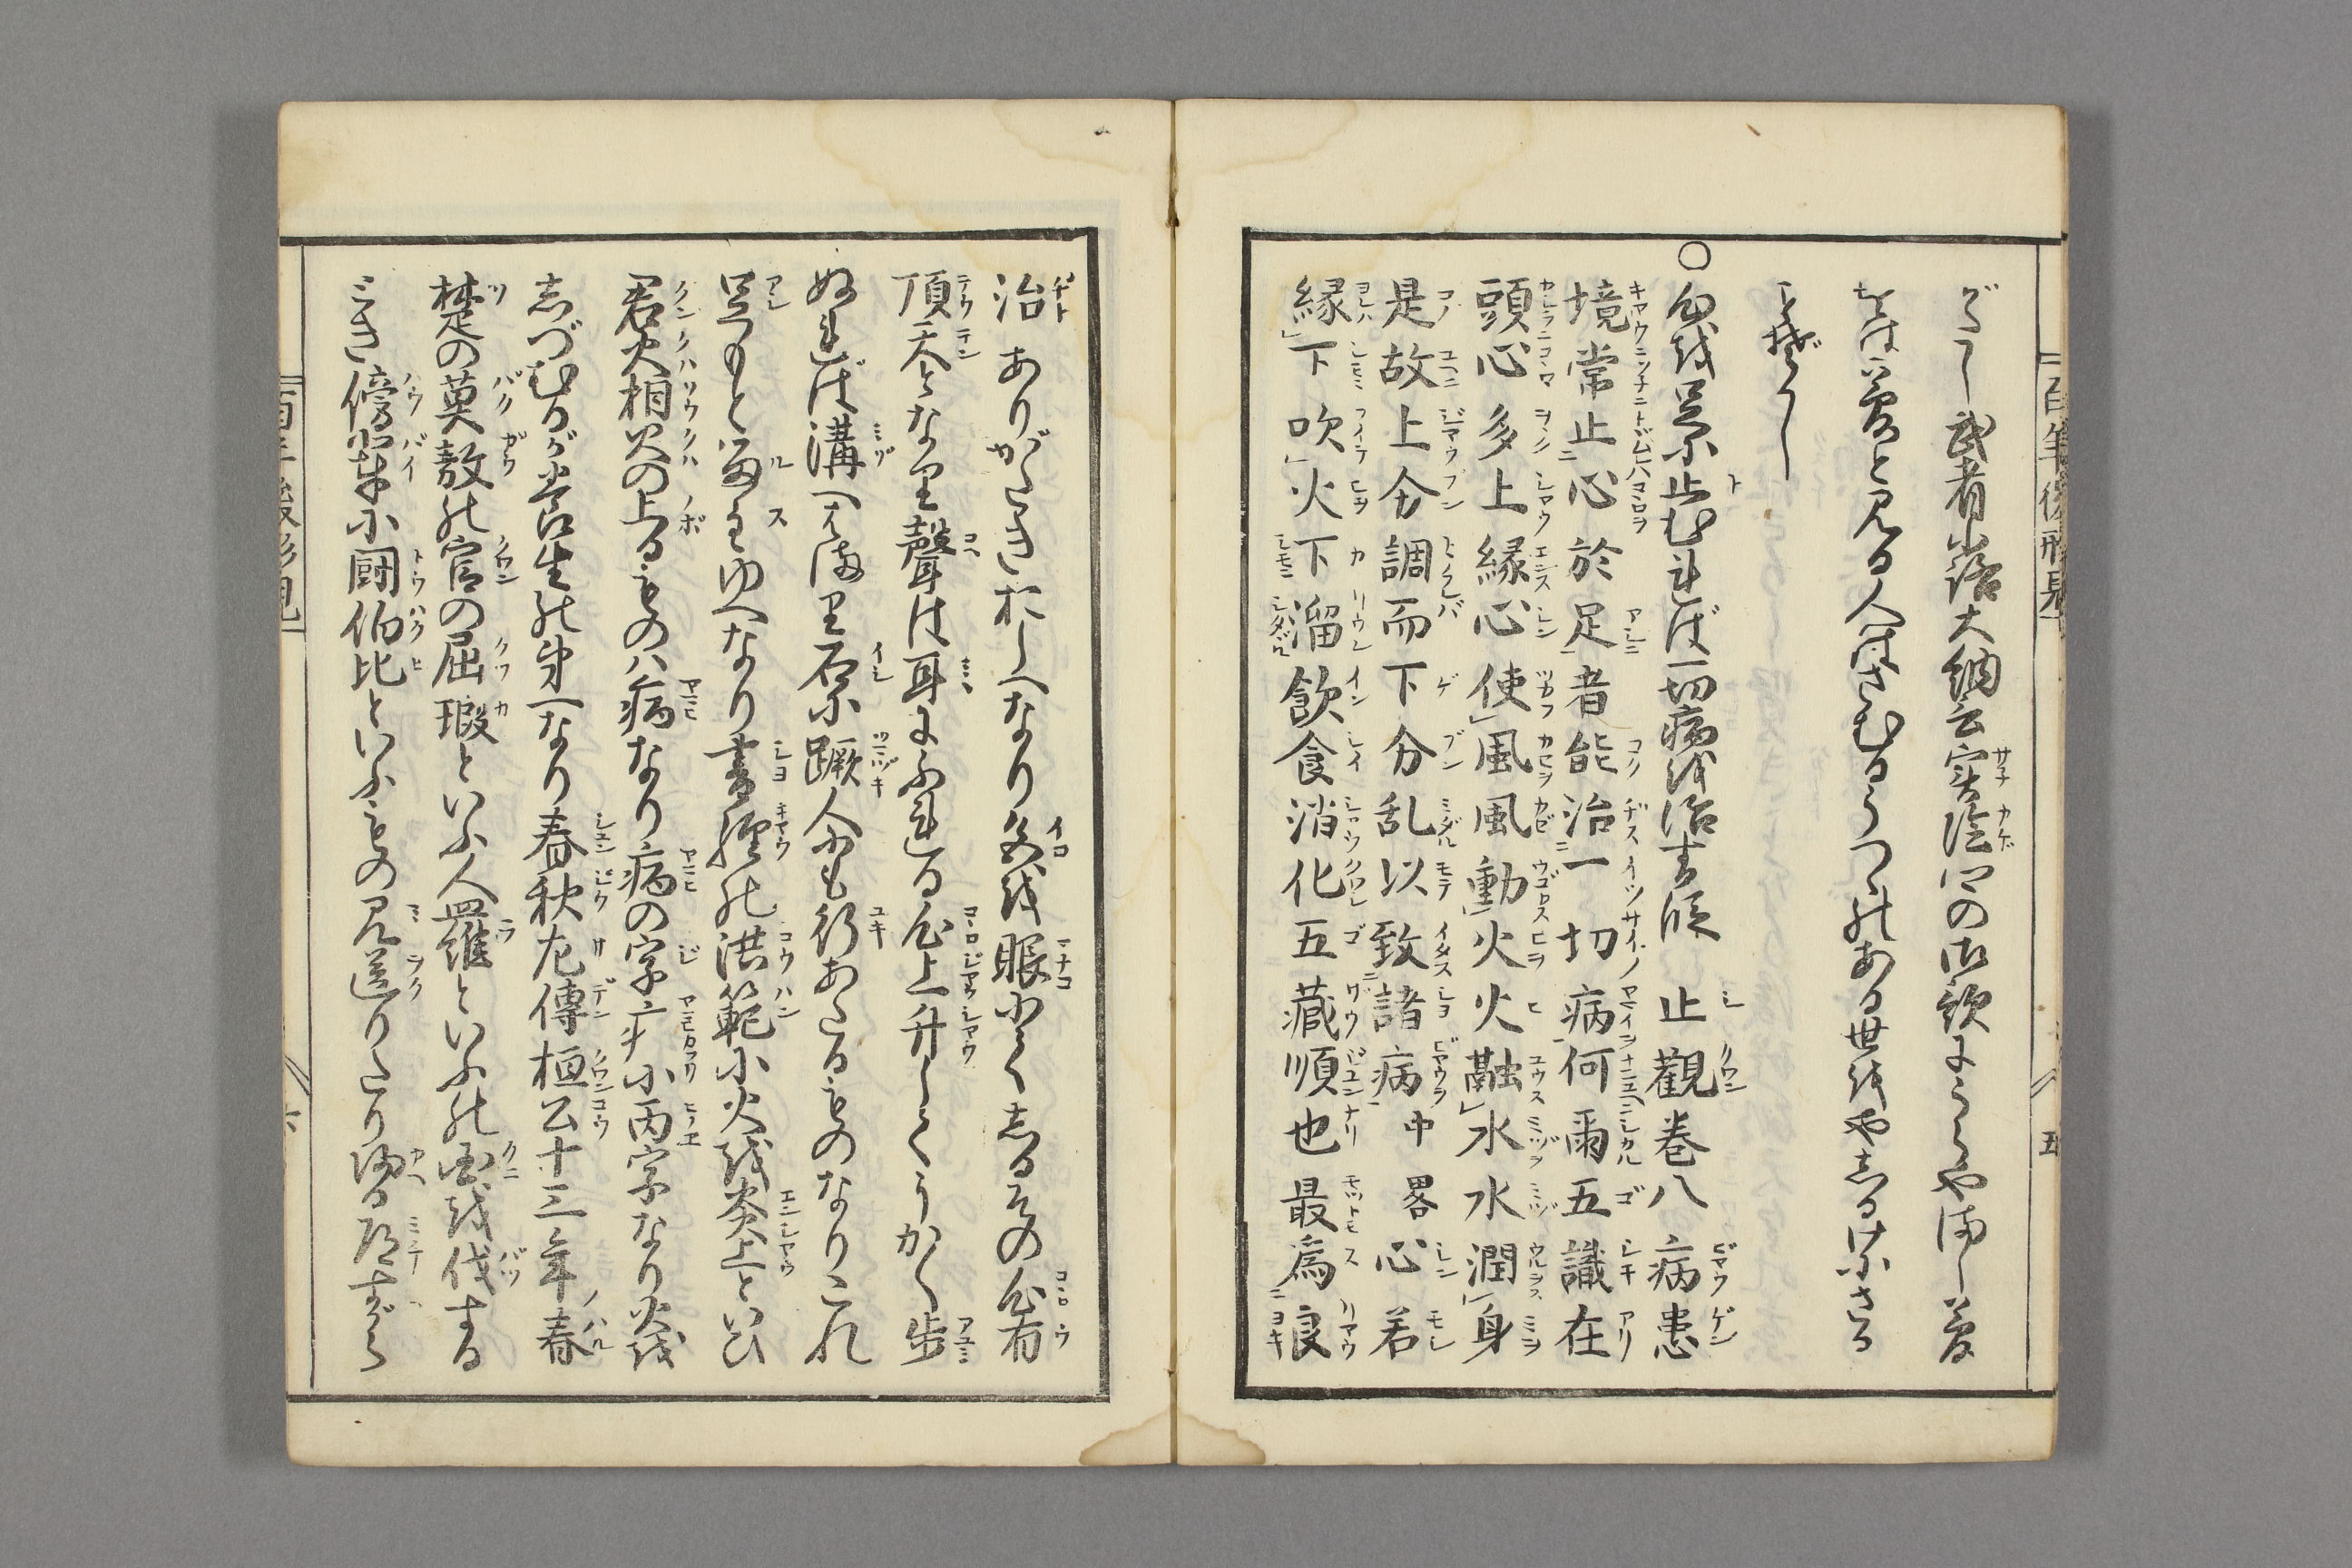 百年後形見
五
がたし武者小路大納言実陰卿の御歌によくやまし夢
をは夢と見る人はさむるうつゝのある世をやしるけふさる
こと哉かし
〇心を足に止むれば一切病を治する候 止觀巻八 病患
境常止心於足者能治一切病何爾五識在
頭心多上縁心使風風動火火融水水潤身
是故上分調而下分乱以致諸病中畧心若
縁下吹火下溜飲食消化五藏順也最為良
治 ありがたきおしへなり色を眼にてしるその心有
頂天となり聲は耳にふれる心上升してうかく歩
ぬれば溝へはまり石に蹶人にも行あたるものなりこれ
足もと留主ゆへなり書經の洪範に火を炎上といひ
君火相火の上るものハ病なり病の字疒に丙字なり火を
しづむるが養生の第一なり春秋左傳桓公十三年春
楚の莫敖の官の屈瑕といふ人羅といふの国を伐する
とき傍輩に闘伯比といふもの見送りたり帰る道すがら
百年後形見
六